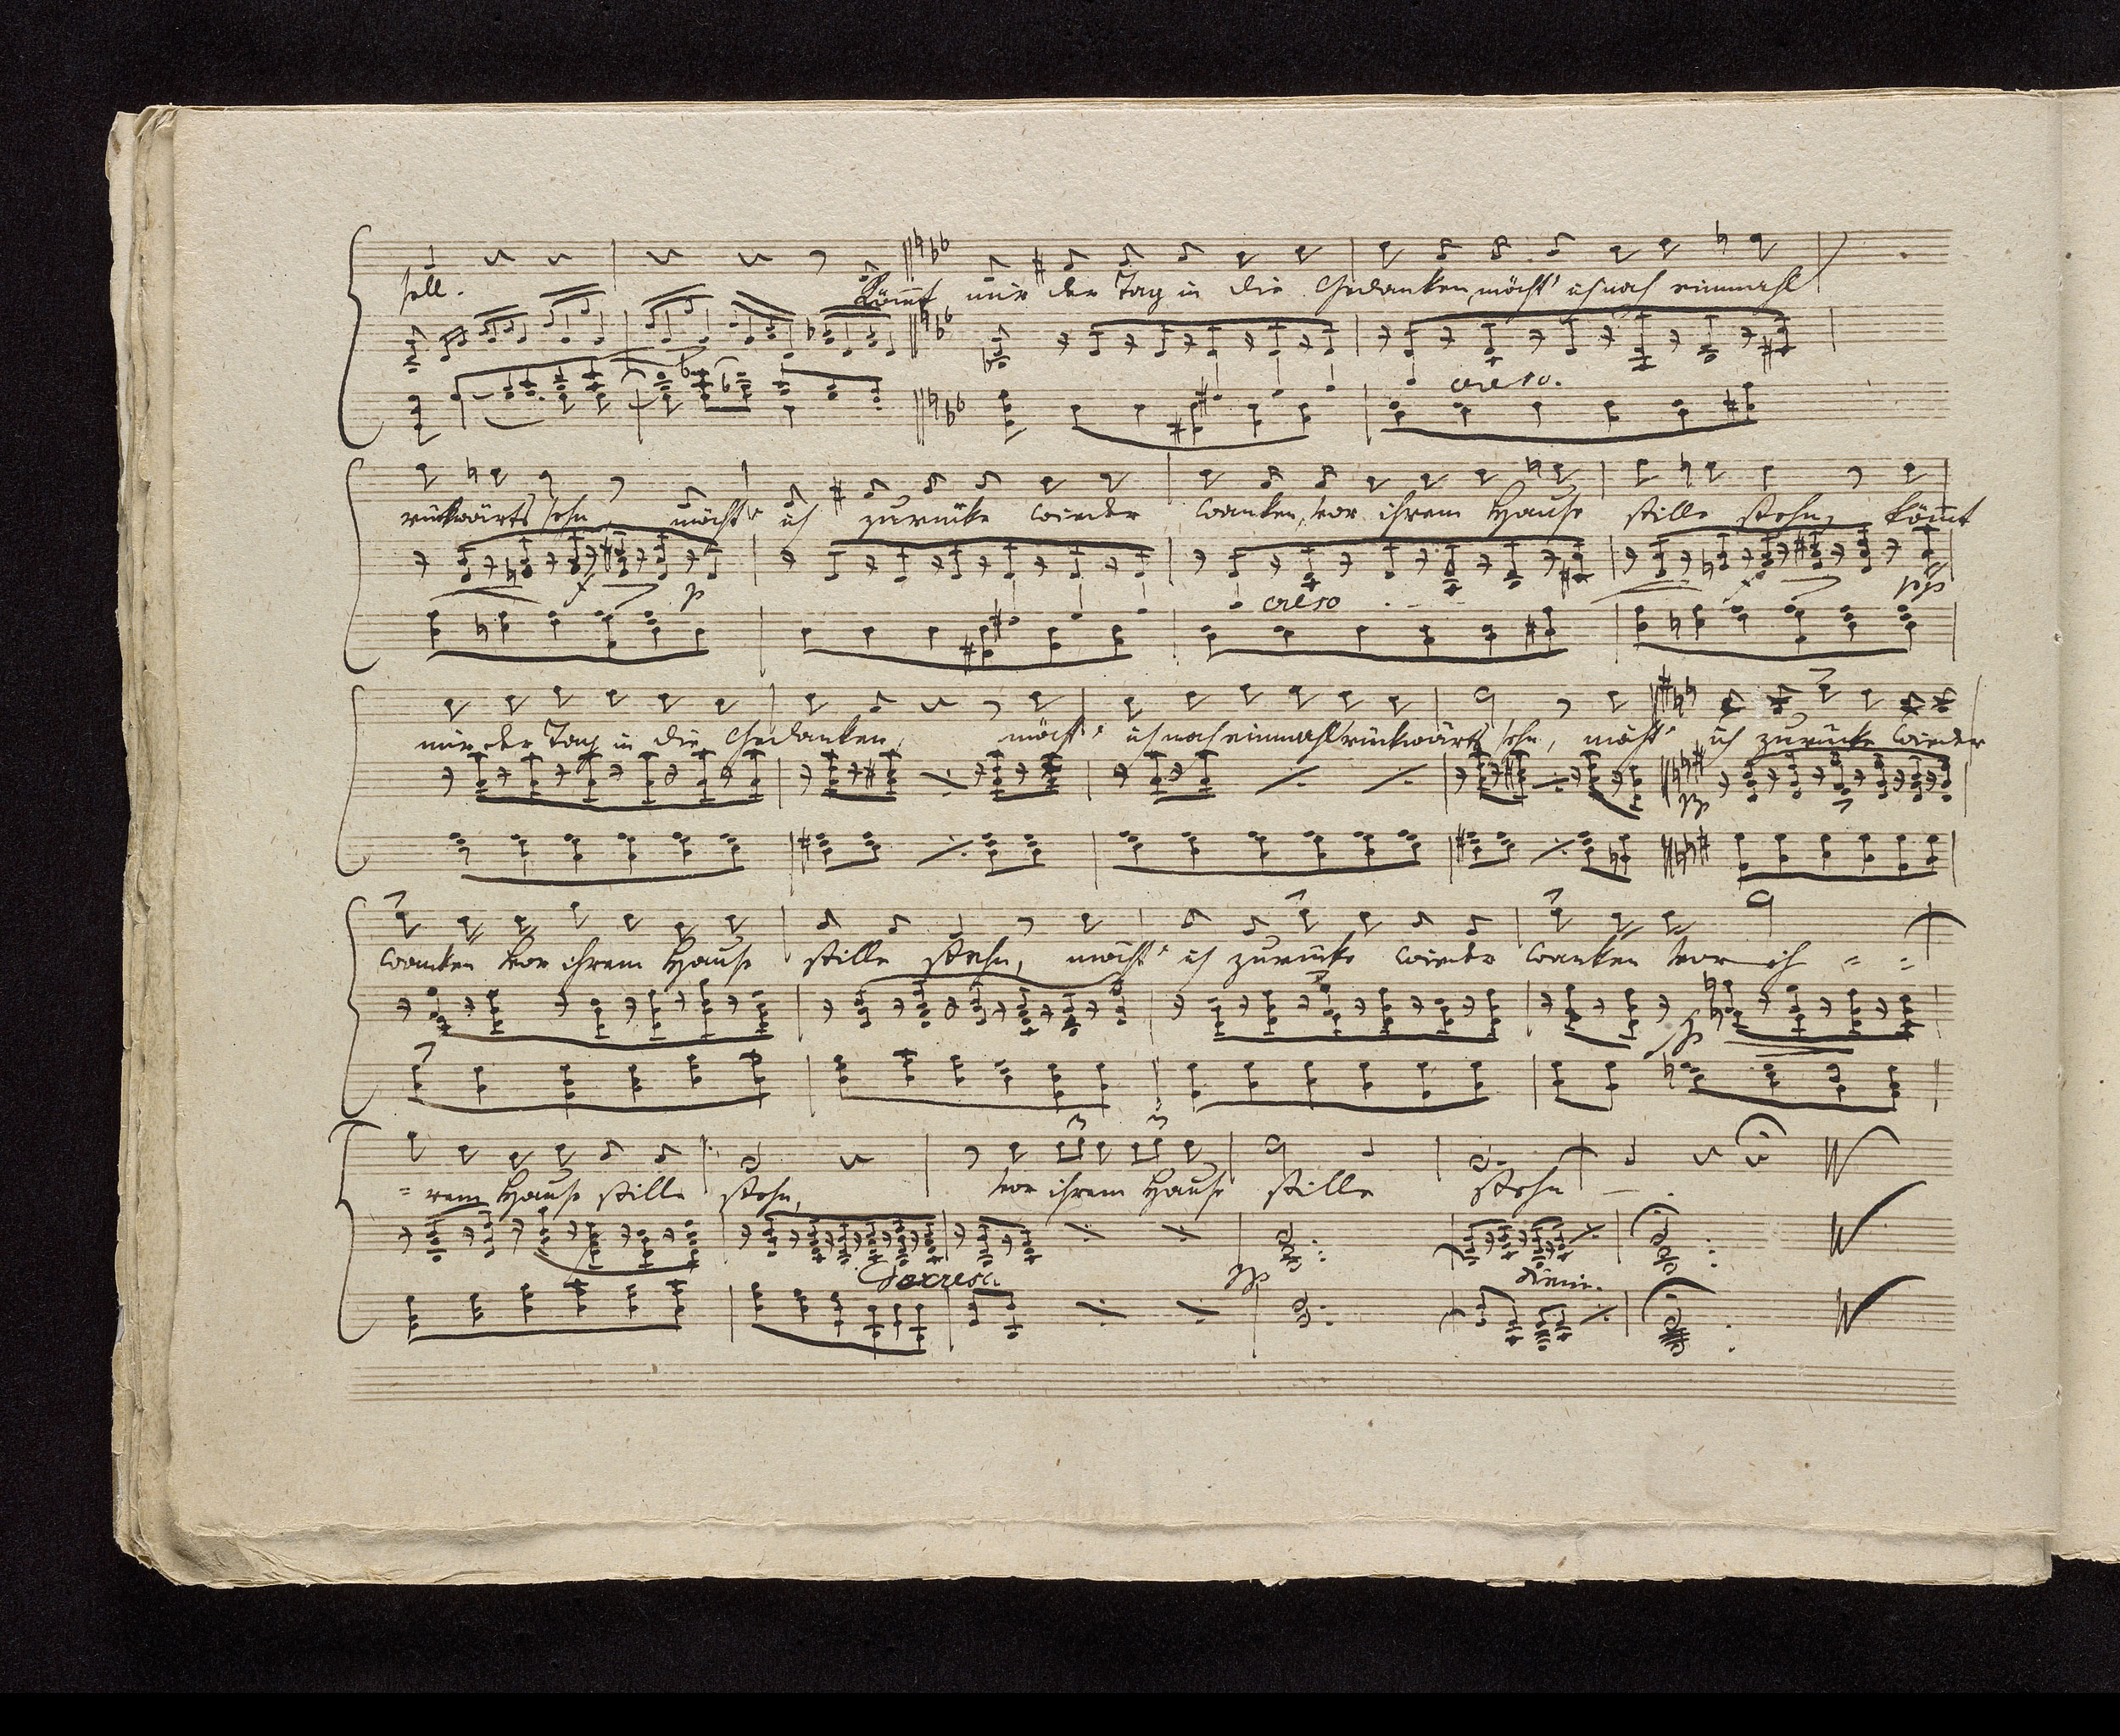 hell. Kömt mir der Tag in die Gedanken, möcht' ich noch einmahl
cresc.
rückwärts sehn, möcht' ich zurücke wieder wanken, vor ihrem Hause stille stehn, kömt
f p cresc pp
mir der Tag in die Gedanken, möcht' ich noch einmahl rückwärts sehn, möcht' ich zurücke wieder
pp
wanken vor ihrem Hause stille stehn, möcht' ich zurücke wieder wanken vor ih = =
fp
= rem Hause stille stehn, vor ihrem Hause stille stehn — .
3 3
Decresc. pp dim.